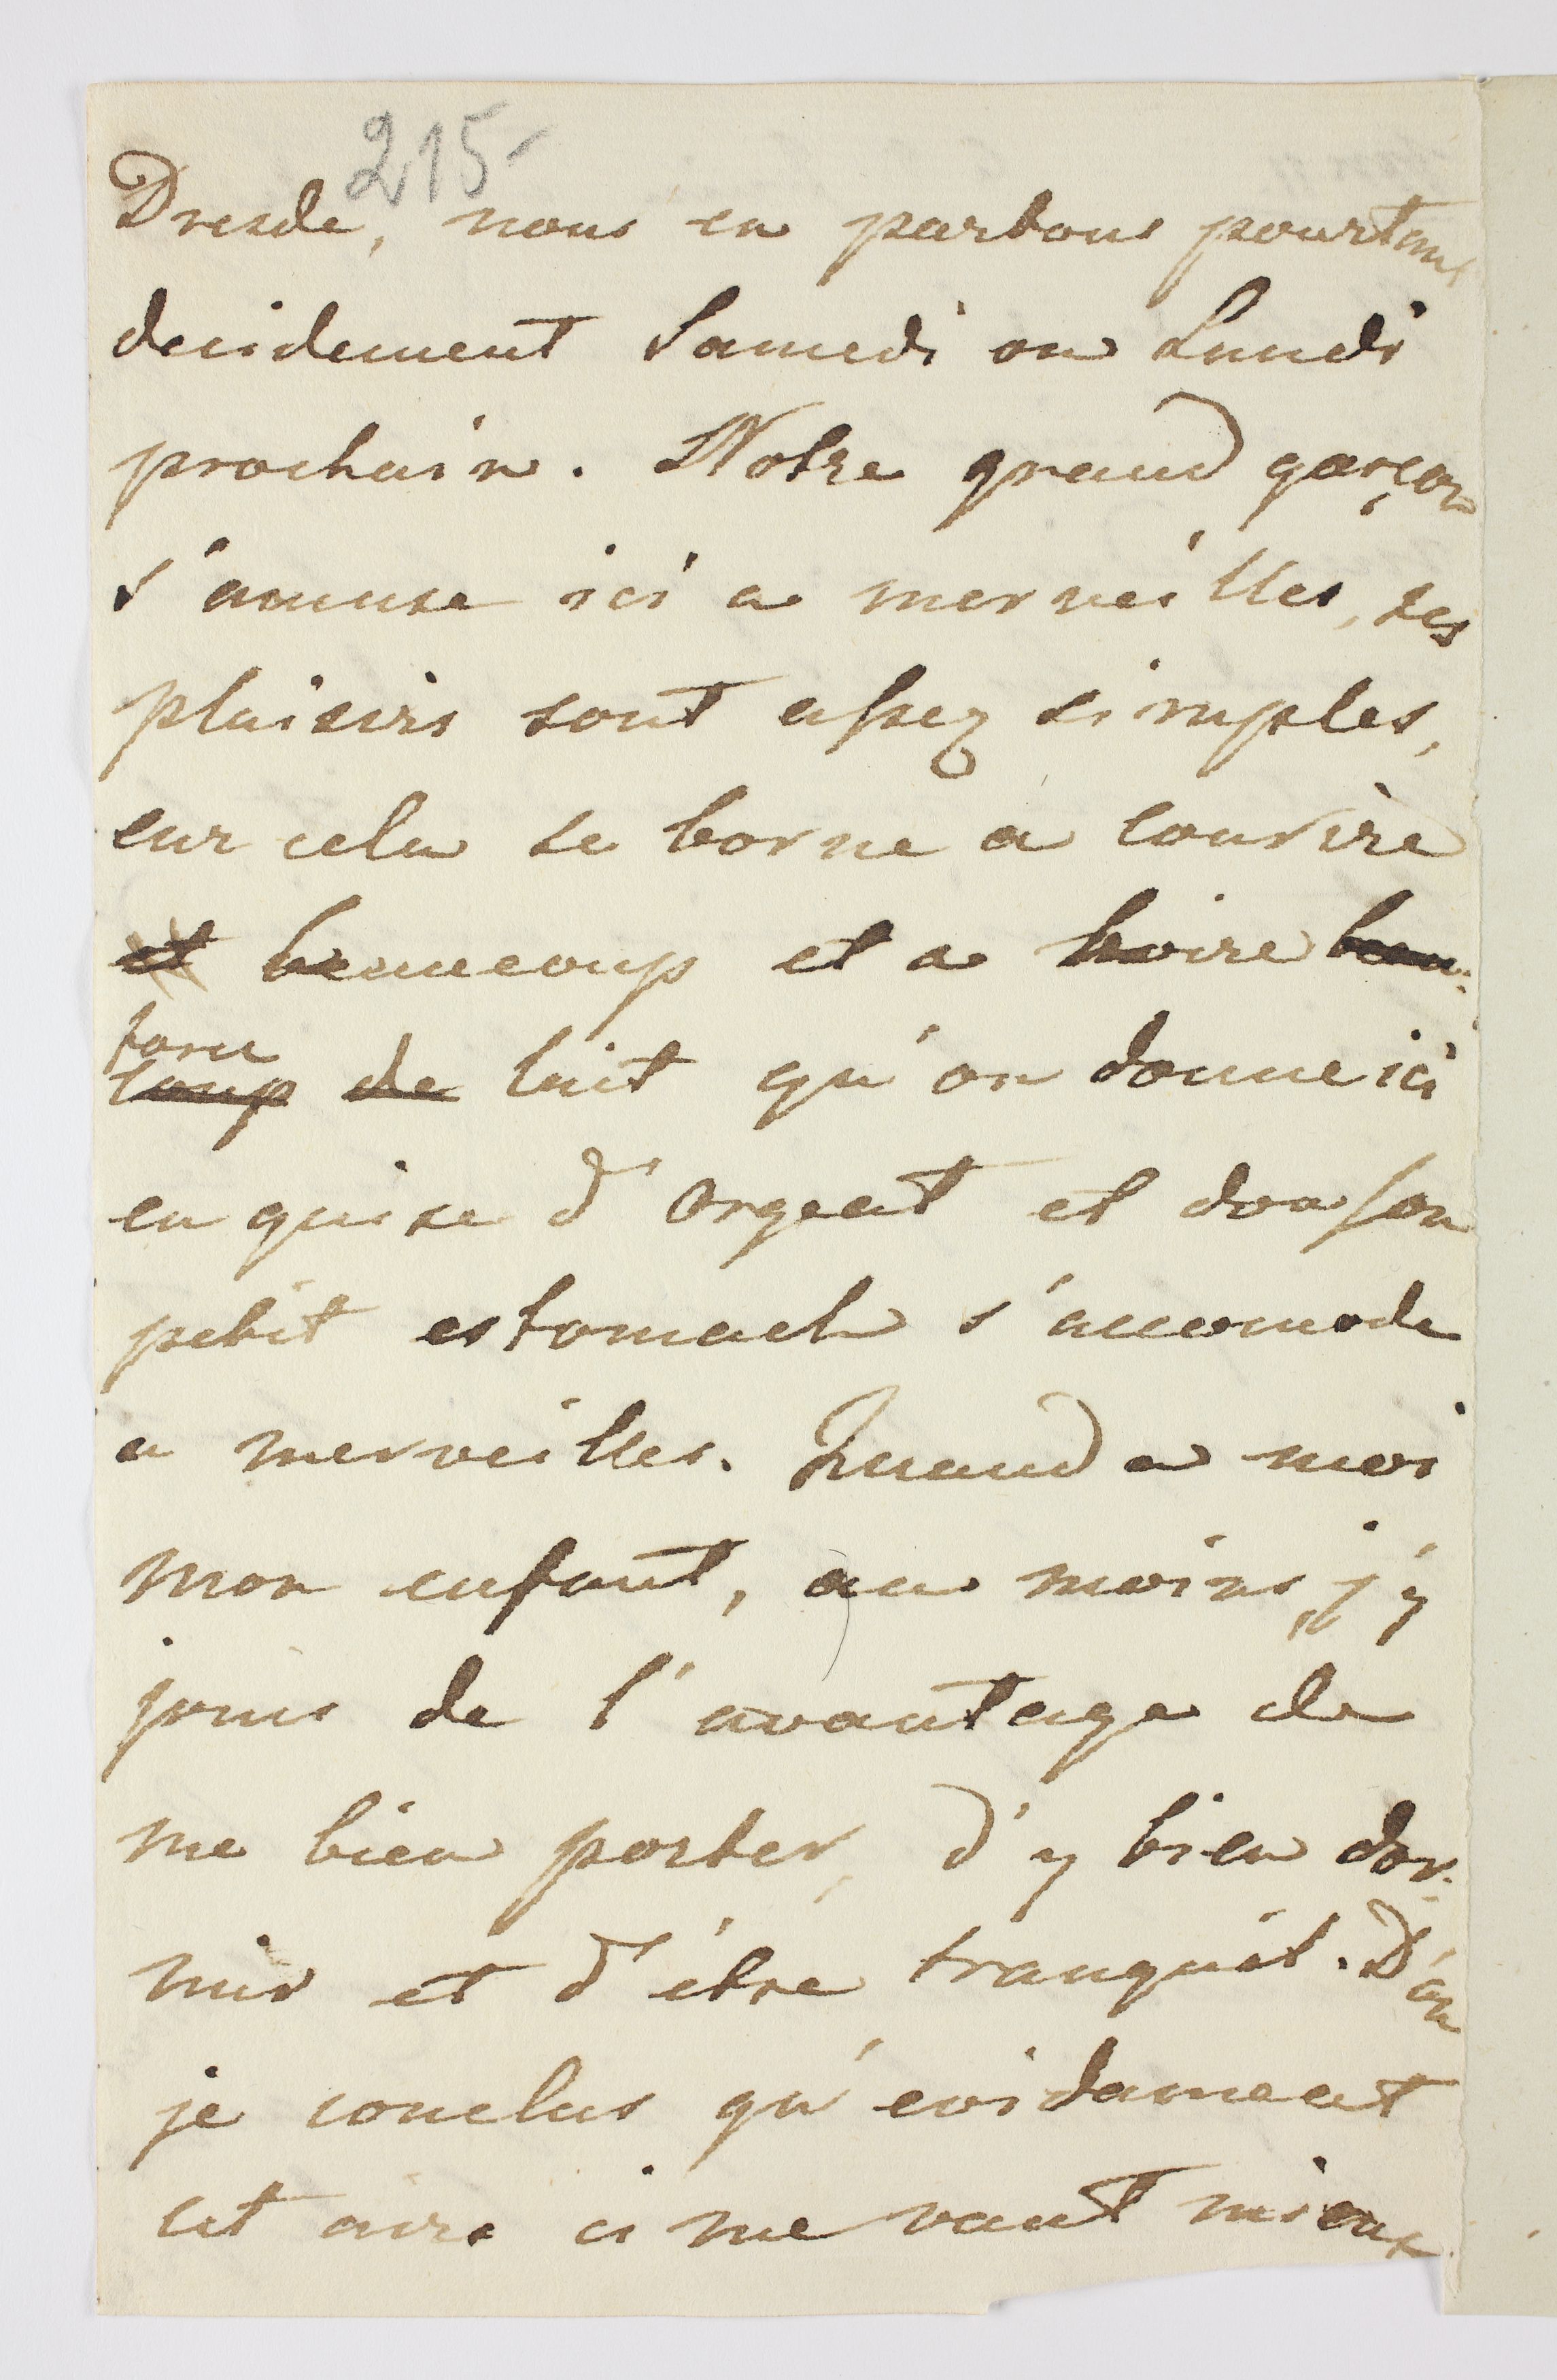 215-
Dresde, nous en partons pourtant
decidement Samedi ou Lundi
prochain. Notre grand garçon
s'amuse ici a merveilles, ses
plaisirs sont assez simples,
car cela se borne a courire
et beaucoup et a boire beau-
force
coup de lait qu'on donne ici
en guise d'Orgeat et don son
petit estomach s'accomode
a merveilles. Quand a moi
mon enfant, au moins j'y
jouis de l'avantage de
me bien porter, d'y bien dor-
mir et d'être tranquil. D'ou
je conclus qu'evidament
cet aire ci me vaut mieux